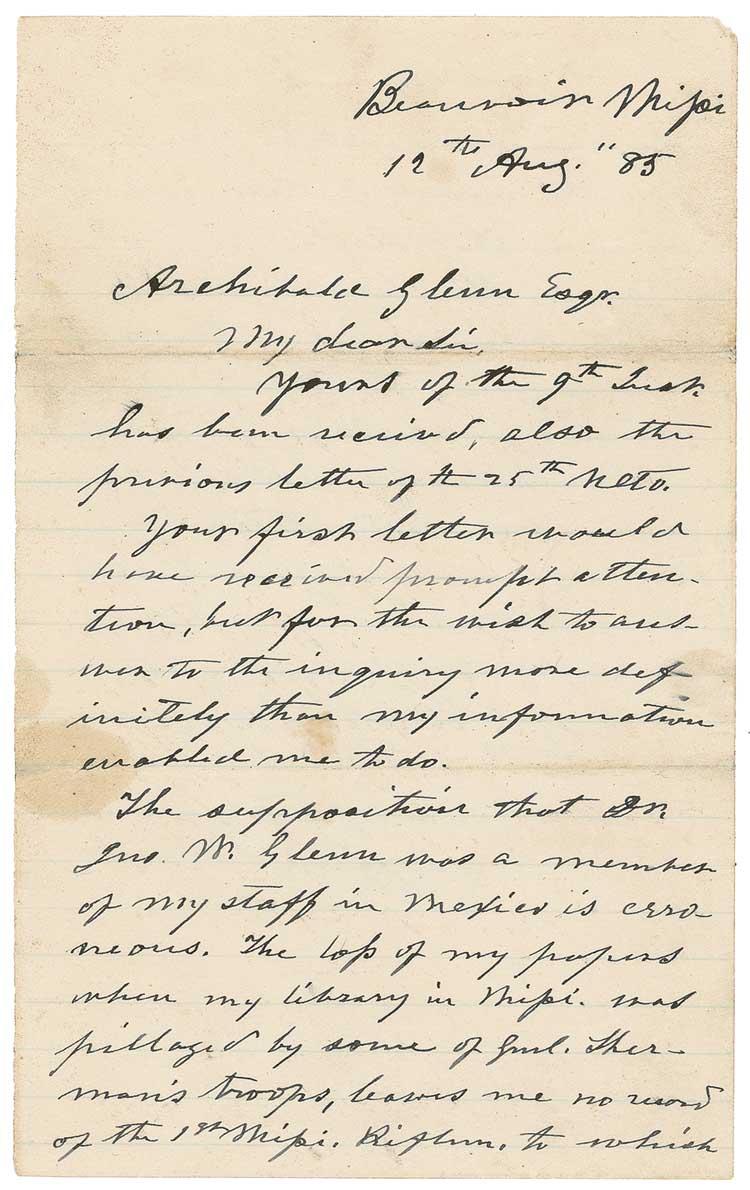 Beauvoir Missi
12th Aug. "85
Archibald Glenn Esqr.
My dear Sir,
Yours of the 9th Inst.
has been received, also the
previous letter of the 25th Ulto.
Your first letter would
have received prompt atten-
tion, but for the wish to ans-
wer to the inquiry more def
initely than my information
enabled me to do.
The supposition that Dr.
Jno. W. Glenn was a member
of my staff in Mexico is erro-
neous. The loss of my papers
when my library in Missi. was
pillaged by some of Genl. Sher-
man's troops, leaves me no record
of the 1st Missi. Riflem. to which